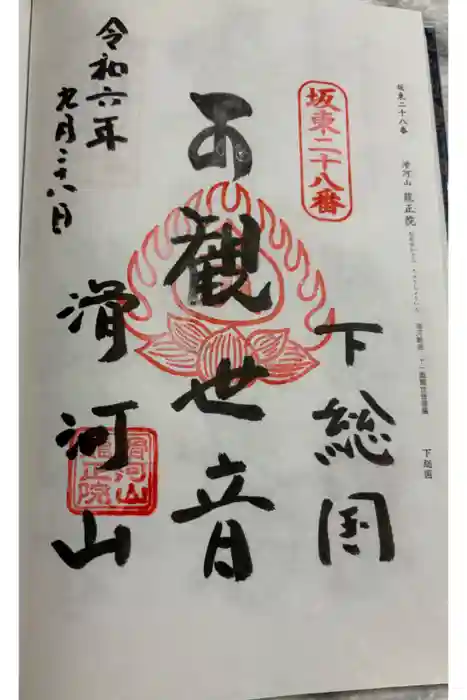 坂東二十八番
滑河山 龍正院
下総国
坂東二十八番
下総国
観世音
滑河山
滑河山
龍正院
令和六年
九月二十八日